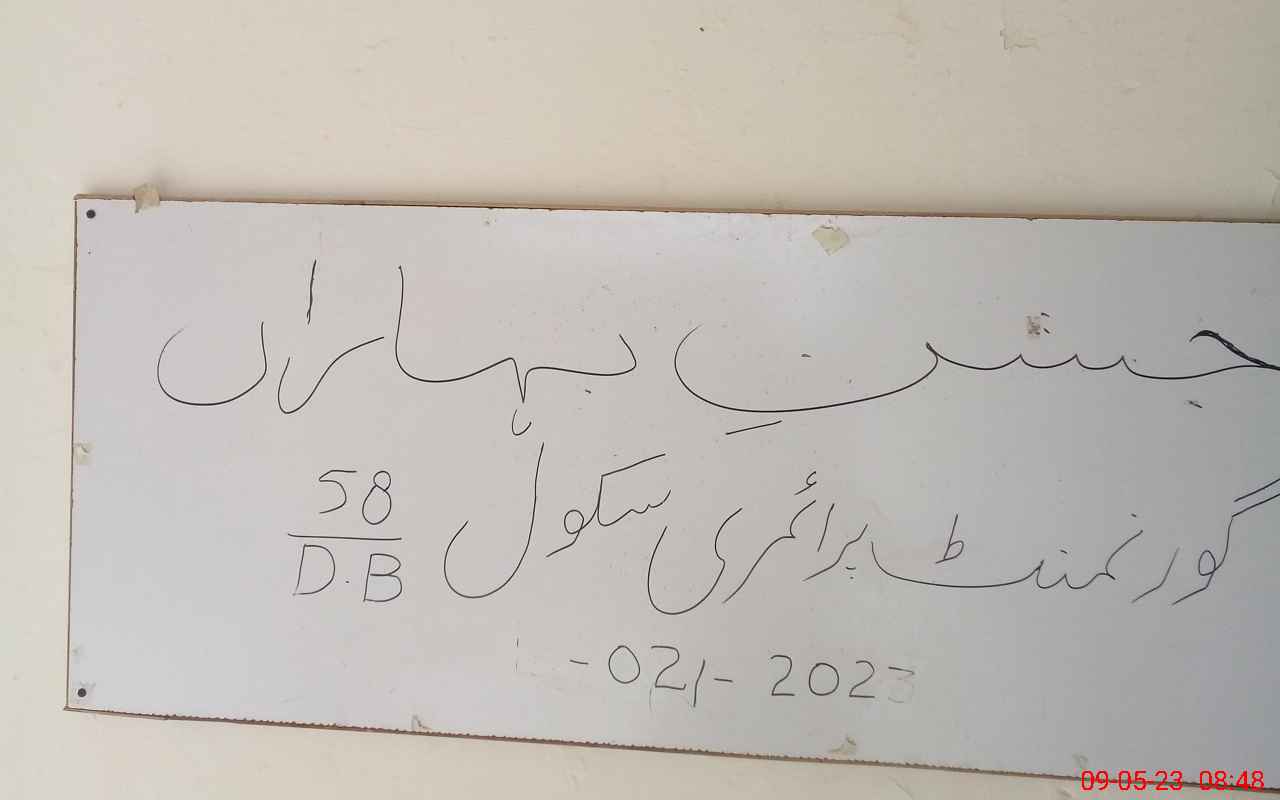 جشنِ بہاراں
گورنمنٹ پرائمری سکول 58/D.B
-02/- 2023
09-05-23 08:48